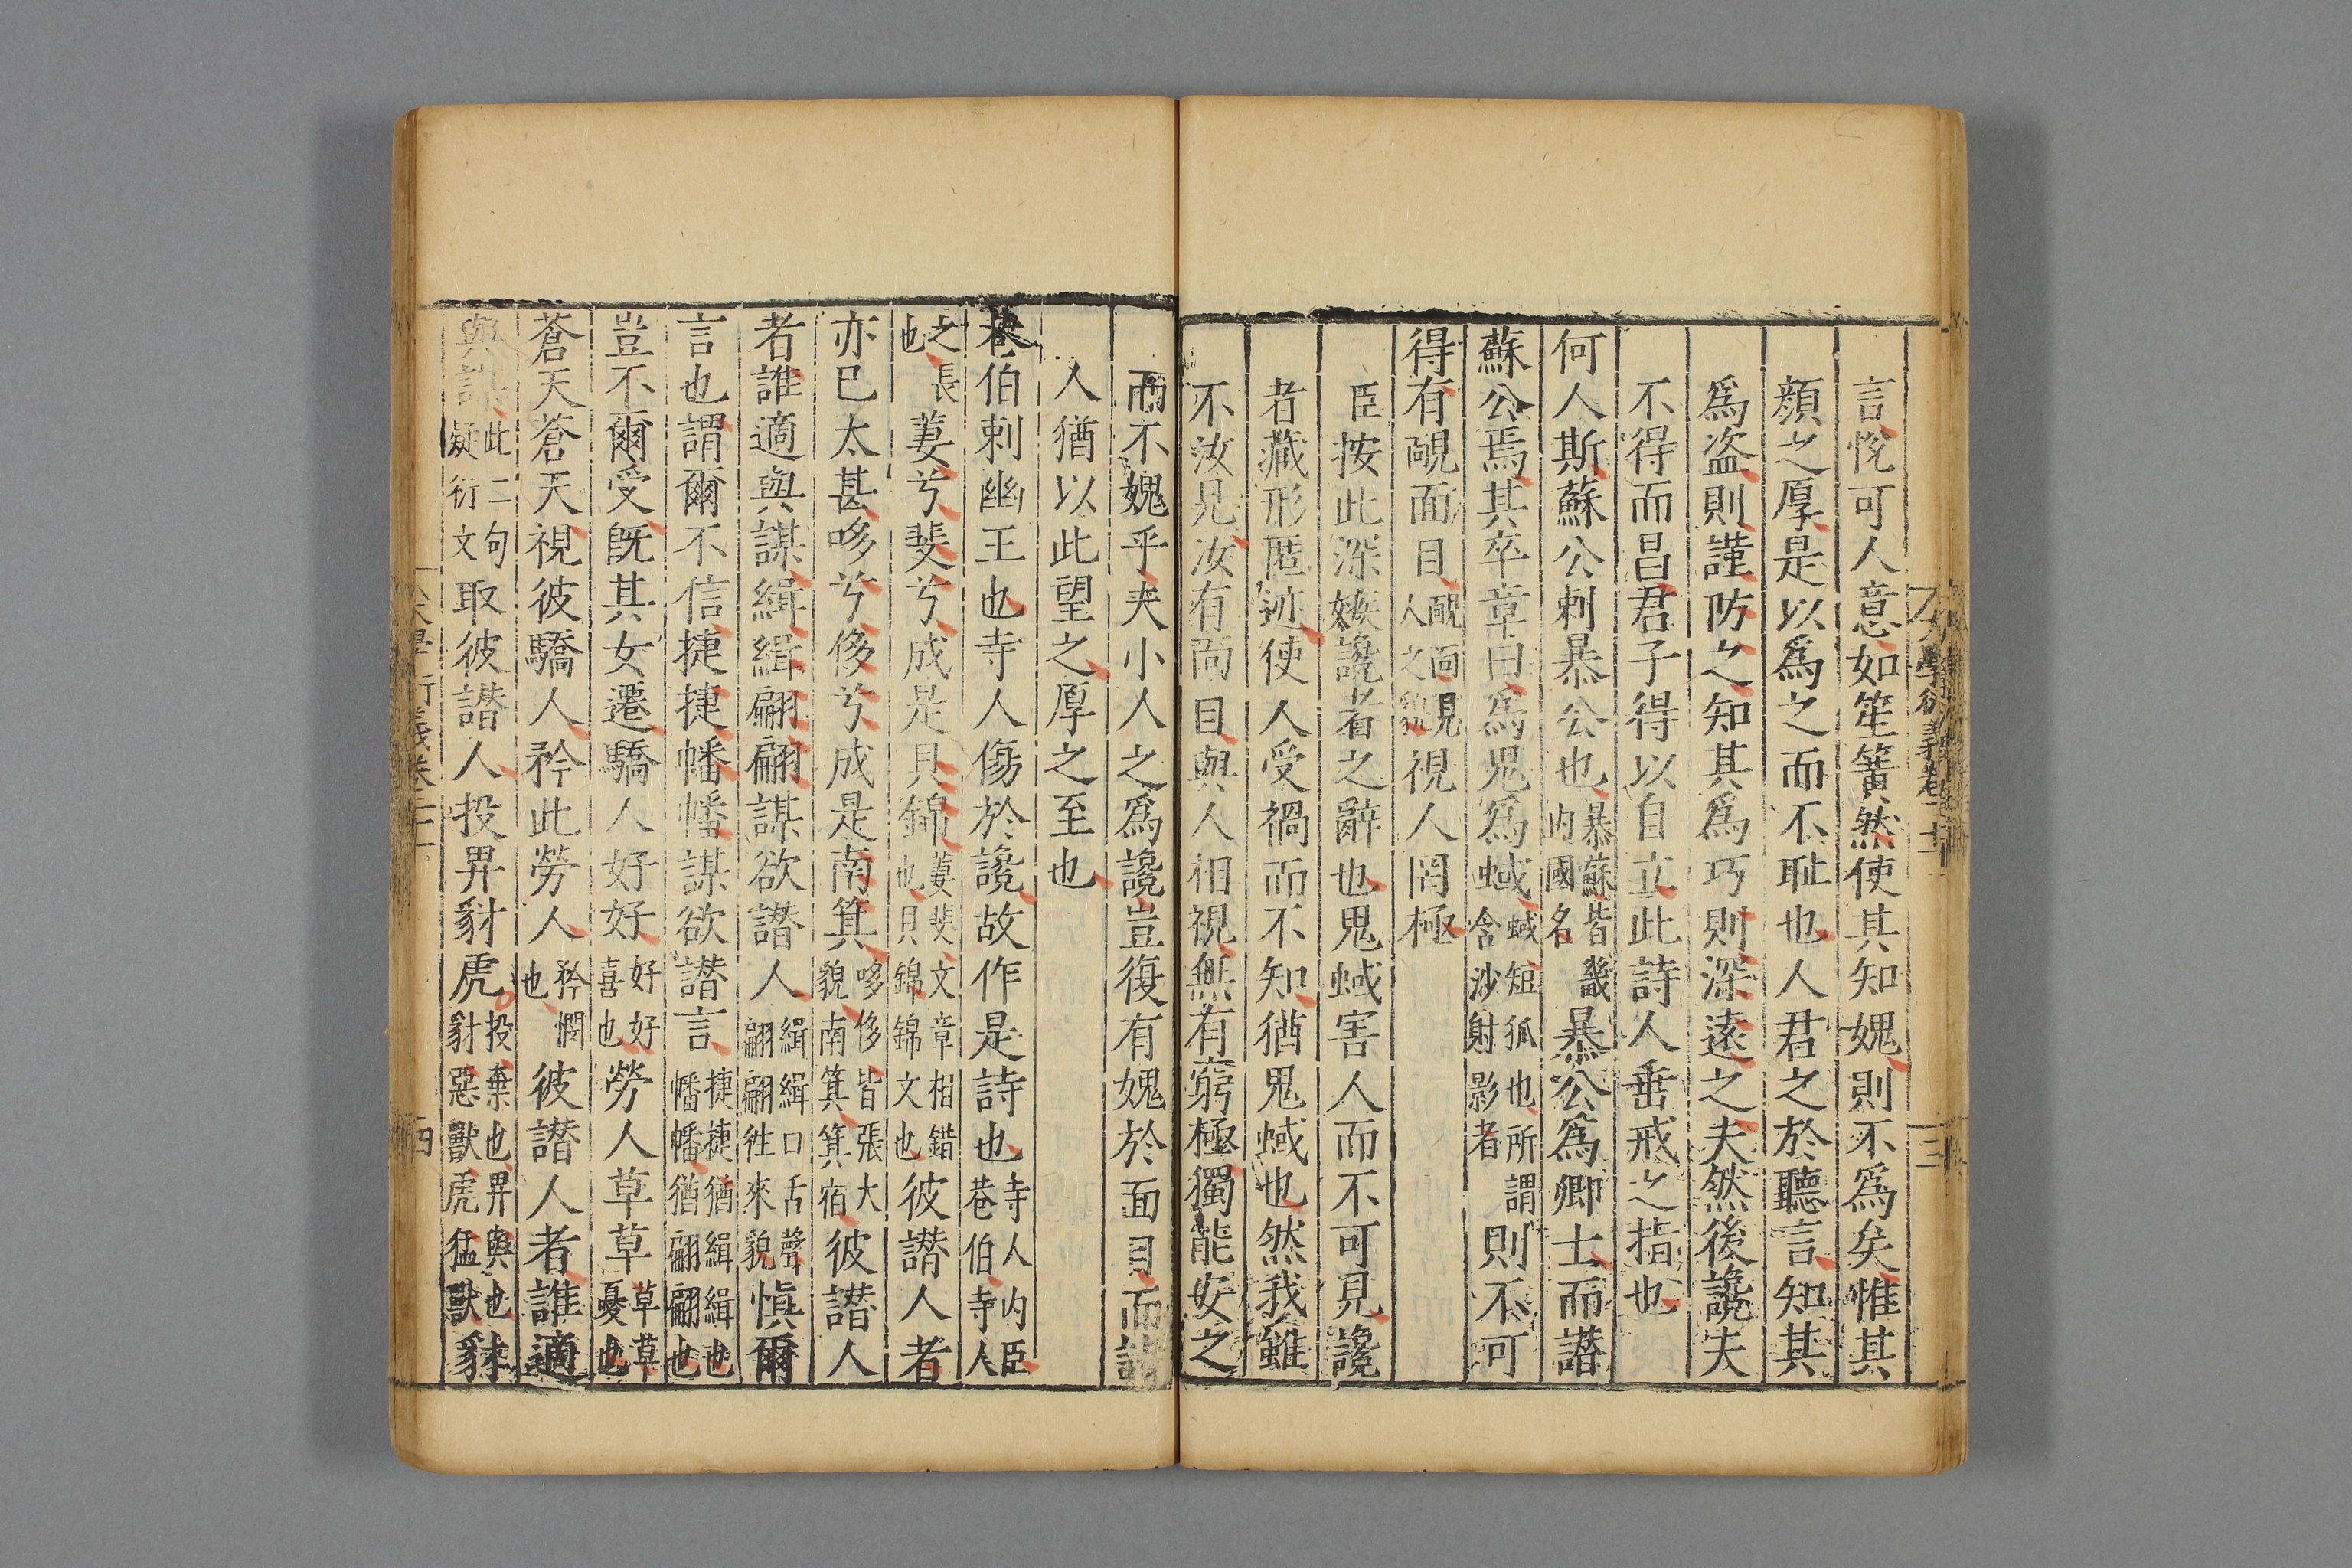 大學衍義卷二十 三
言恱可人意如笙簧然使其知媿則不爲矣惟其
顔之厚是以爲之而不耻也人君之於聽言知其
爲盗則謹防之知其爲巧則深遠之夫然後讒夫
不得而昌君子得以自立此詩人垂戒之指也
何人斯蘇公刺暴公也暴蘇皆畿内國名暴公爲卿士而譖
蘇公焉其卒章曰爲鬼爲蜮蜮短狐也所謂含沙射影者則不可
得有靦面目靦面見人之貌視人罔極
臣按此深嫉讒者之辭也鬼蜮害人而不可見讒
者藏形匿迹使人受禍而不知猶鬼蜮也然我雖
不汝見汝有面目與人相視無有窮極獨能安之
而不媿乎夫小人之爲讒豈復有媿於面目而詩
人猶以此望之厚之至也
巷伯刺幽王也寺人傷於讒故作是詩也寺人内臣巷伯寺人
之長也萋兮斐兮成是貝錦萋斐文章相錯也貝錦錦文也彼譖人者
亦已太甚哆兮侈兮成是南箕哆侈皆張大貌南箕箕宿彼譖人
者誰適與謀緝緝翩翩謀欲譖人緝緝口舌聲翩翩徃來貌慎爾
言也謂爾不信捷捷幡幡謀欲譖言捷捷猶緝緝也幡幡猶翩翩也
豈不爾受旣其女遷驕人好好好好喜也勞人草草草草憂也
蒼天蒼天視彼驕人矜此勞人矜憫也彼譖人者誰適
與謀此二句疑衍文取彼譖人投畀豺虎投棄也畀與也豺惡獸虎猛獸豺
大學衍義卷二十 四